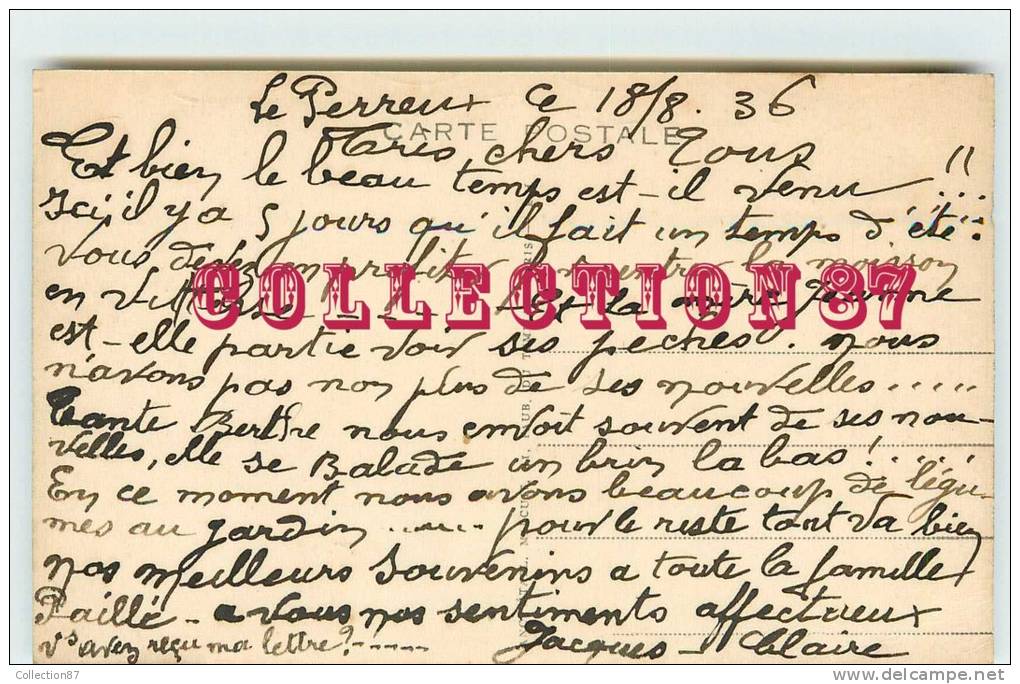 Le Perreux ce 18/8. 36
CARTE POSTALE
Très chers Tous
Et bien le beau temps est-il venu !!...
Ici, il y a 5 jours qu'il fait un temps d'été..
Vous devez en profiter rentrer la moisson
COLLECTION 87
en Et la mère Jeanne
est-elle partie voir ses peches. nous
n'avons pas non plus de ses nouvelles.....
Tante Berthe nous envoit souvent de ses nou-
velles, elle se Balade un brin la bas!.....
En ce moment nous avons beaucoup de légu-
mes au jardin ....... pour le reste tout va bien
nos meilleurs Souvenirs a toute la famille
Paillé - a vous nos sentiments affectueux
Vs avez reçu ma lettre? -----
Jacques - Claire
Collection87
www.delcampe.net